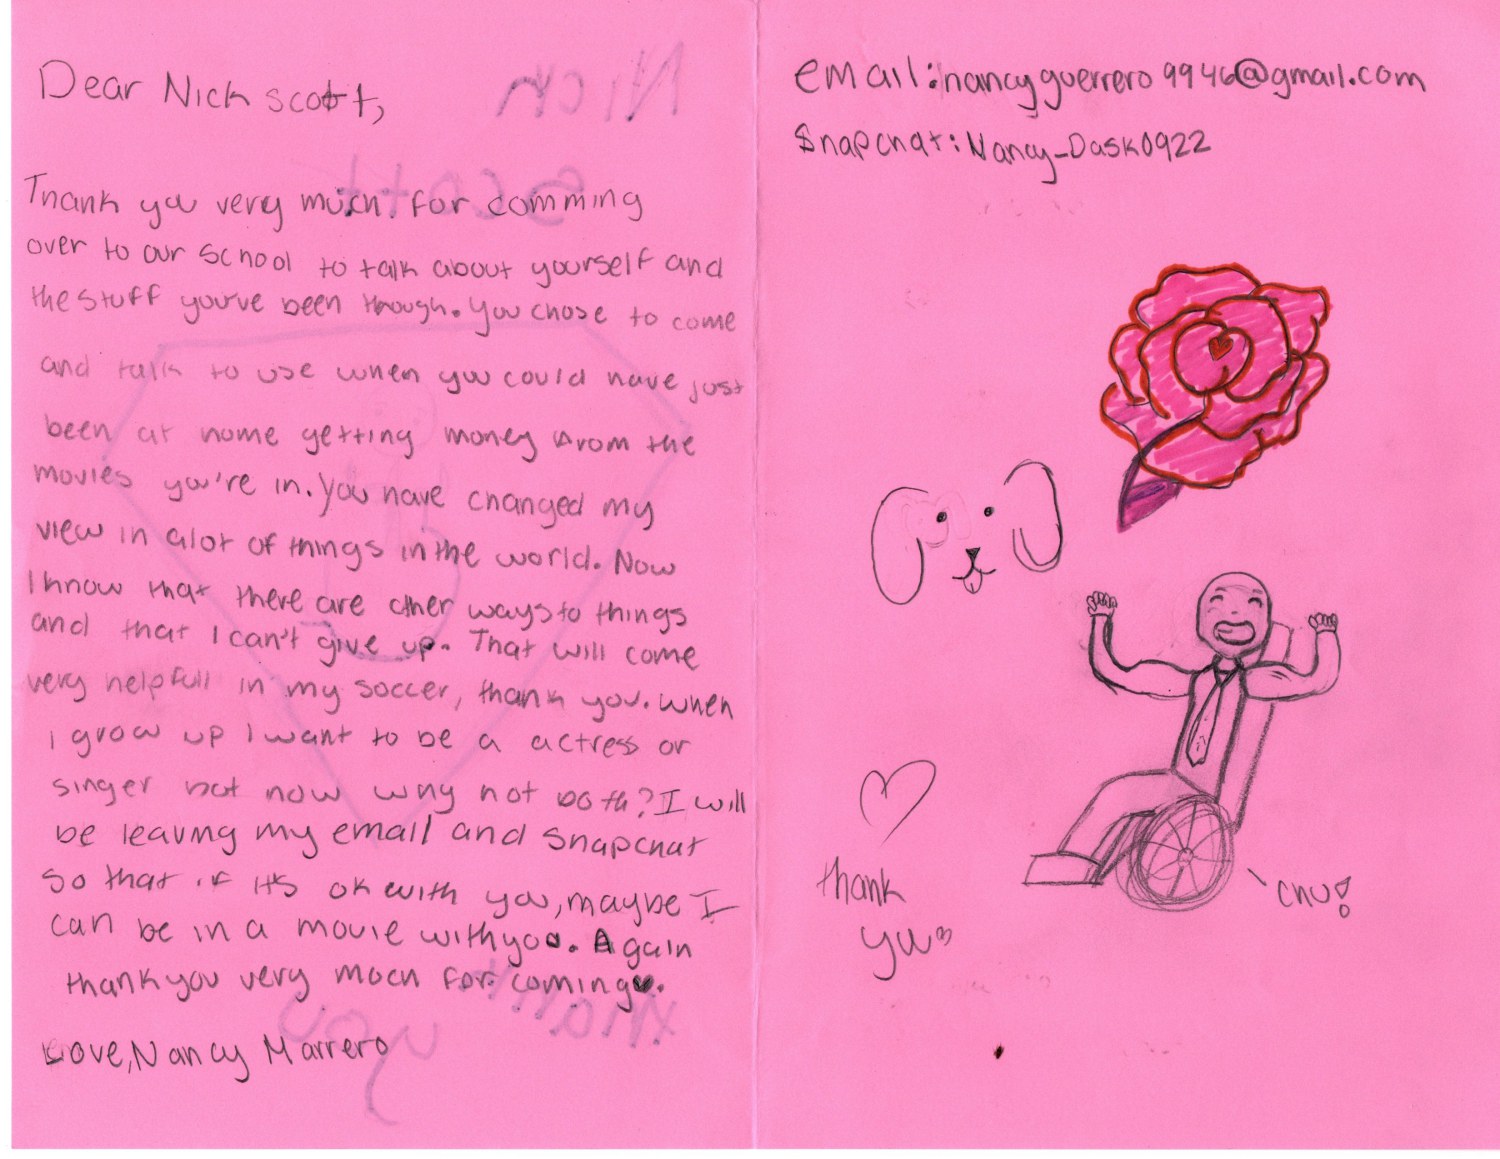 Dear Nick scott,
Thank you very much for comming
over to our school to talk about yourself and
the stuff you've been though. You chose to come
and talk to use when you could have just
been at home getting money from the
movies you're in. You have changed my
view in alot of things in the world. Now
I know that there are other ways to things
and that I can't give up. That will come
very helpfull in my soccer, thank you. When
i grow up I want to be a actress or
singer but now why not both? I will
be leaving my email and snapchat
so that if it's ok with you, maybe I
can be in a movie with you. Again
thank you very much for coming.
Love, Nancy Marrero
email: nancyguerrero9946@gmail.com
Snapchat: Nancy_Dask0922
chu!
thank
you